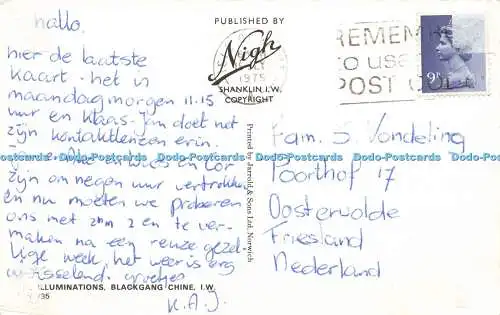 hallo,
hier de laatste
kaart. het is
maandagmorgen 11.15
uur en Klaas-Jan doet net
zijn kontaktlenzen erin.
en Cor
zijn om negen uur vertrokken
en nu moeten we proberen
ons met z'n 2 en te ver-
maken na een reuze gezel-
lige week, het weer is erg
wisselend. groetjes
K.A.J.
ILLUMINATIONS, BLACKGANG CHINE, I.W.
PUBLISHED BY
Nigh
SHANKLIN, I.W.
COPYRIGHT
1975
Printed by Jarrold & Sons Ltd. Norwich
REMEMBER
to use
POST CODE
9P
Fam. S Vondeling
Poorthof 17
Oosterwolde
Friesland
Nederland
Dodo-Postcards Dodo-Postcards Dodo-Postcards Dodo-Postcards Dodo-Postcards